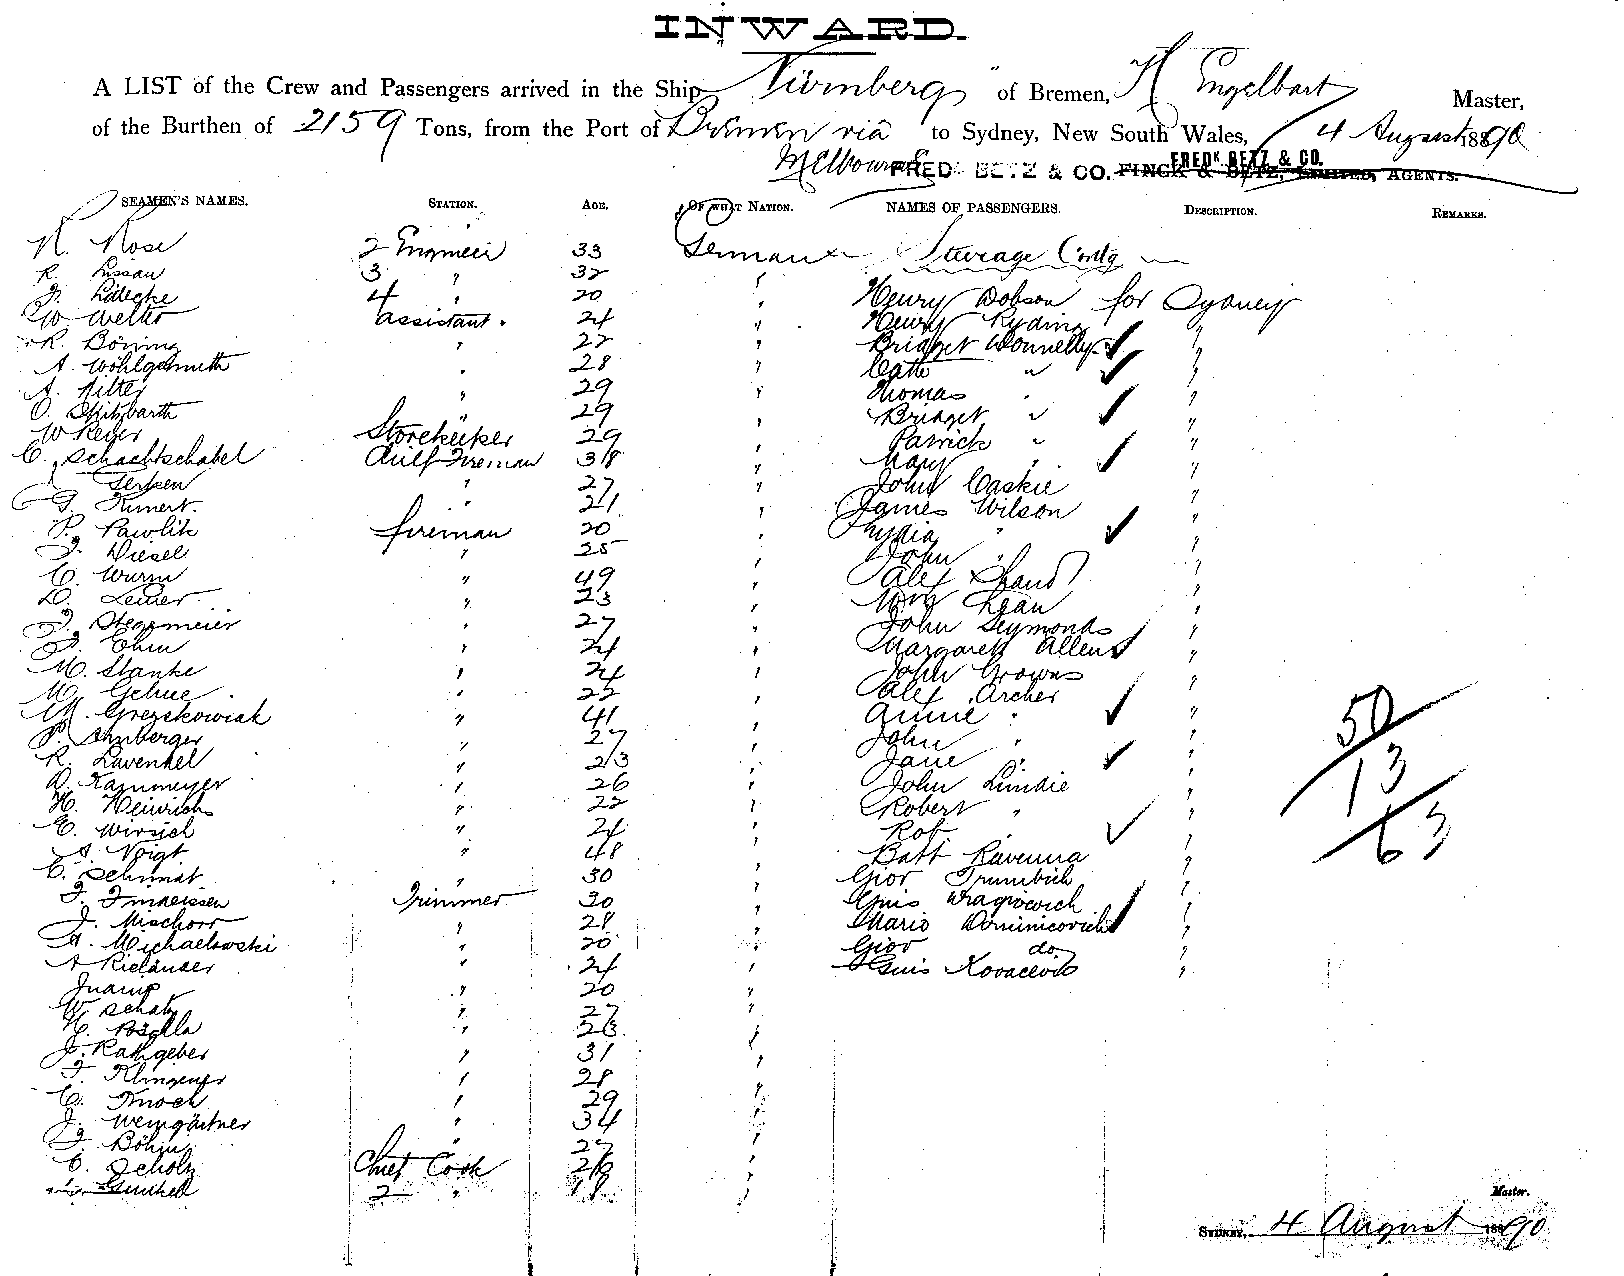 INWARD.
A LIST of the Crew and Passengers arrived in the Ship Nürnberg of Bremen, H Engelbart Master,
of the Burthen of 2159 Tons, from the Port of Bremen via to Sydney, New South Wales, 4 August 1890
Melbourne FRED. BETZ & CO. FINCK & BETZ, LIMITED, AGENTS.
FREDK. BETZ & CO.
SEAMEN'S NAMES. STATION. AGE. OF WHAT NATION. NAMES OF PASSENGERS. DESCRIPTION. REMARKS.
R. Rose 2 Engineer 33 German Steerage Contg
R. Lussau 3 " 32 "
F. Lädecke 4 " 20 " Henry Dobson for Sydney
W Welter assistant. 24 " Henry Ryding "
R. Böning " 22 " Bridget Donnelly "
A. Wohlgemuth " 28 " Cath " "
A. Ritter " 29 " Thomas " "
O. " 29 " Bridget " "
W Reyer Storekeeper 29 " Patrick " "
C. Schachtschabel Chief Fireman 38 " Mary " "
" 27 " John Caskie "
Kunert. " 21 " James Wilson "
P. Pawlik fireman 20 " " "
F. Diesel " 25 " John " "
C. Wurm " 49 " Alex Shand "
D. " 23 " Wm "
F. Stegemeier " 27 " John Seymonds "
" 24 " Margareth Allen "
M. Stanke " 24 " John "
M. Gehue " 22 " Alex Archer "
M. Grezskowiak " 41 " Annie " "
" 27 " John " "
R. Lavendel " 23 " Jane " "
D. " 26 " John Lundie "
H. Heinrichs " 22 " Robert " "
E. Wirsich " 24 " Rob. " "
A. Voigt " 48 " Batt Ravenna "
C. Schmidt " 30 " Gior "
F. Trimmer 30 " Guis "
J. Mischorr " 28 " Mario Dominicovich "
A. Michaelowski " 20 " Gior do "
A Rieländer " 24 " Guis Kovacevic "
" 20 "
W Schatz " 27 "
" 23 "
J. Rathgeber " 31 "
F. " 28 "
C. Knoch " 29 "
J. Weingärtner " 34 "
F. Böhm " 27
C. Scholz Chief Cook 26 "
2 " "
50
13
63
Master.
SYDNEY, 4 August 1890